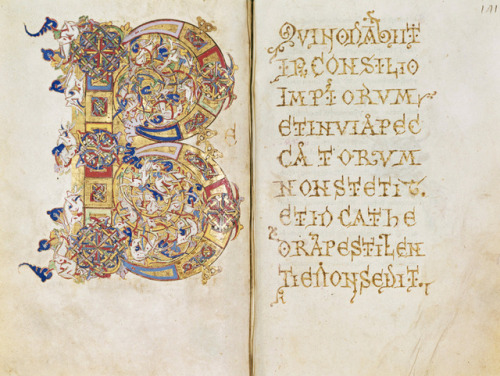 B
QVINONABIIT
IN CONSILIO
IMPIORVM
ETINVIAPEC
CATORVM
NONSTETIT.
ETINCATHE
DRAPESTILEN
TIENONSEDIT.